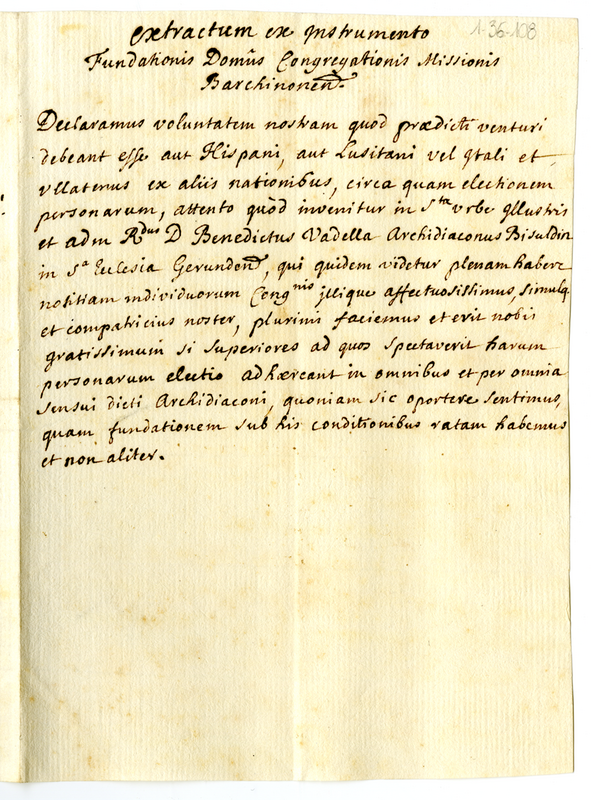 1-36-108
extractum ex Instrumento
Fundationis Domûs Congregationis Missionis
Barchinonen̄.
Declaramus voluntatem nostram quod prædicti venturi
debeant esse aut Hispani, aut Lusitani vel Itali et
vllatenus ex aliis nationibus, circa quam electionem
personarum, attento quòd invenitur in Sta vrbe Illustris
et adm Rdus D Benedictus Vadella Archidiaconus Bisuldin
in Sa Ecclesia Gerunden̄, qui quidem videtur plenam habere
notitiam individuorum Congnis illique affectuosissimus, simulq.
et compatricius noster, plurimi faciemus et erit nobis
gratissimum si superiores ad quos spectaverit harum
personarum electio adhæreant in omnibus et per omnia
sensui dicti Archidiaconi, quoniam sic oportere sentimus,
quam fundationem sub his conditionibus ratam habemus
et non aliter.